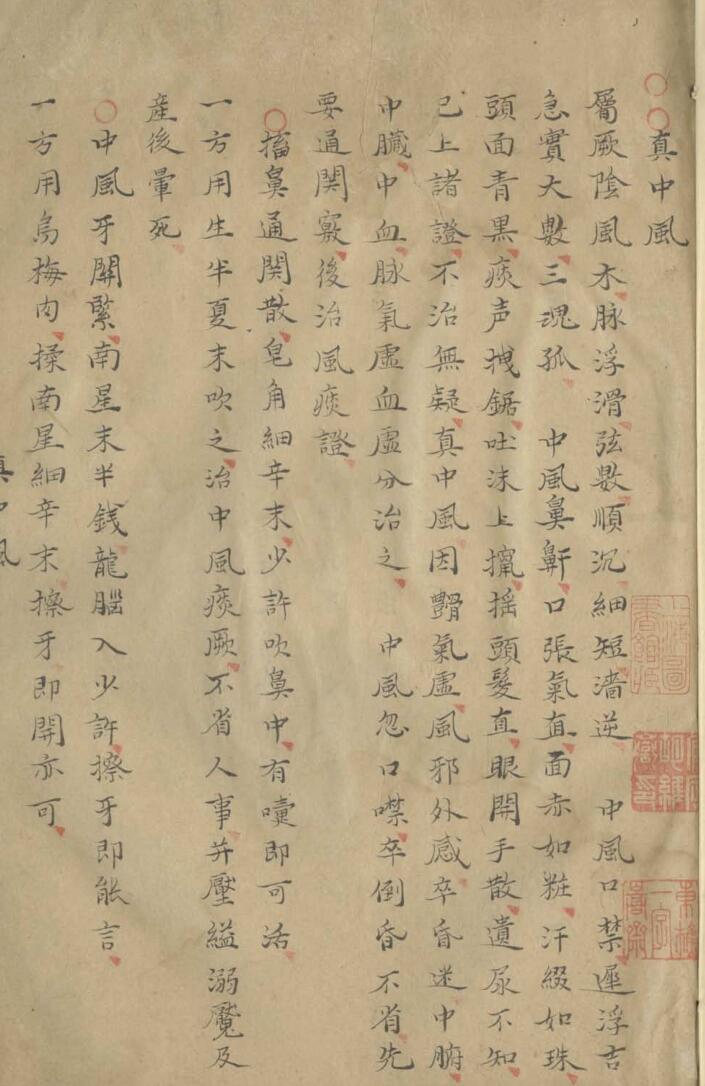 真中風
屬厥陰風木脉浮滑弦數順沉細短濇逆 中風口禁遲浮吉
急實大數三魂孤 中風鼻鼾口張氣直面赤如粧汗綴如珠
頭面青黑痰声拽鋸吐沫上攛揺頭髮直眼開手散遺尿不知
已上諸證不治無疑真中風因氣虛風邪外感卒昏迷中腑
中臟中血脉氣虛血虛分治之 中風忽口噤卒倒昏不省先
要通関竅後治風痰證
搐鼻通関散皂角細辛末少許吹鼻中有嚏即可活
一方用生半夏末吹之治中風痰厥不省人事并壓縊溺魘及
産後暈死
中風牙關緊南星末半銭龍腦入少許擦牙即能言
一方用烏梅肉揉南星細辛末擦牙即開亦可
真中風